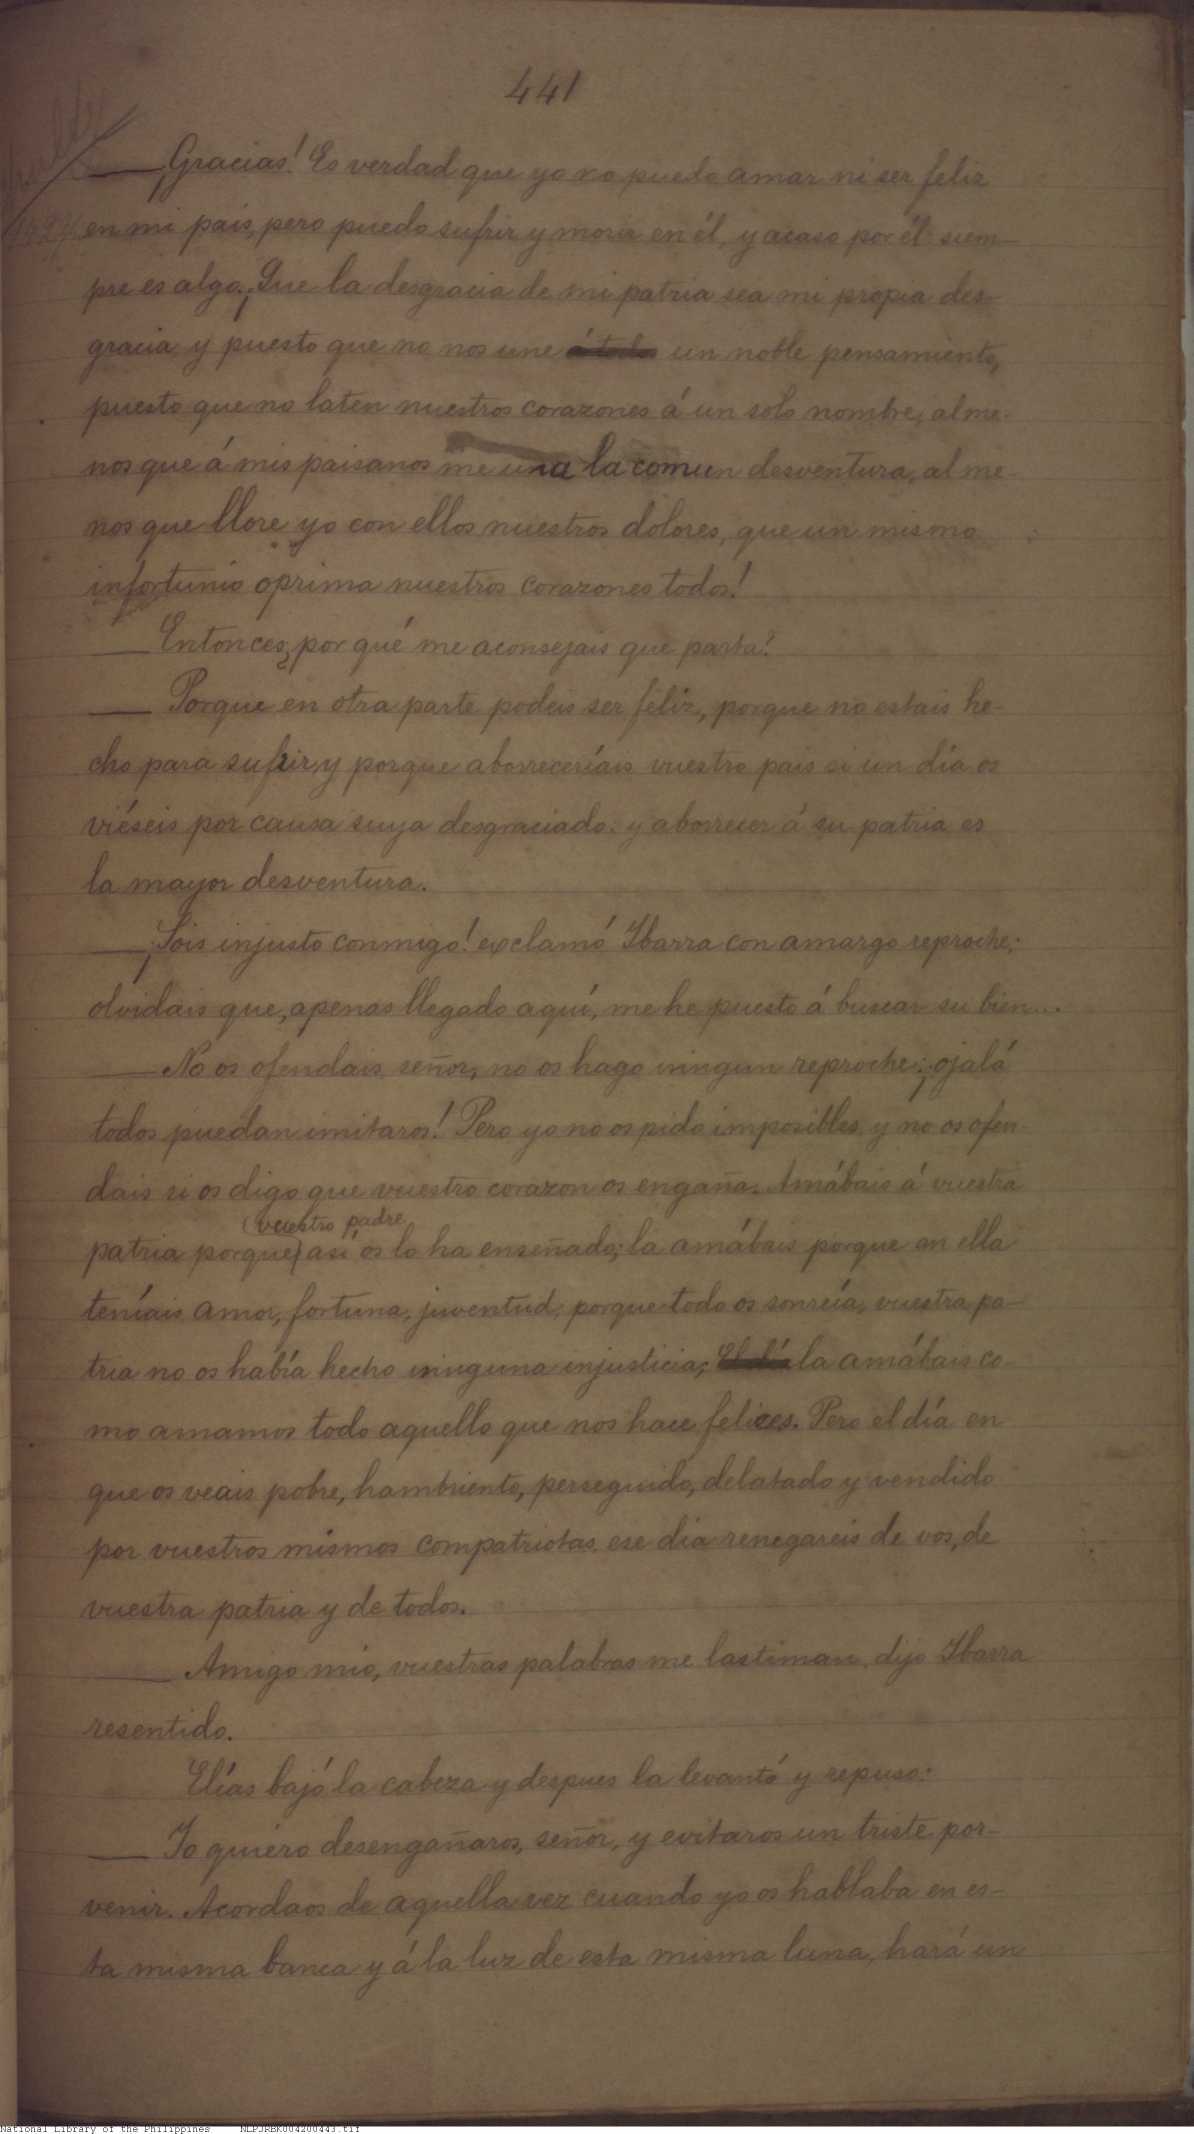 441
— ¡Gracias! Es verdad que yo no puedo amar ni ser feliz
en mi pais, pero puedo sufrir y morir en él, y acaso por él: siem-
pre es algo. ¡Que la desgracia de mi patria sea mi propia des-
gracia y puesto que no nos une á todos un noble pensamiento,
puesto que no laten nuestros corazones á un solo nombre, al me-
nos que á mis paisanos me una la comun desventura, al me-
nos que llore yo con ellos nuestros dolores, que un mismo
infortunio oprima nuestros corazones todos!
— Entonces ¿por qué me aconsejais que parta?
— Porque en otra parte podeis ser feliz, porque no estais he-
cho para sufrir, y porque aborreceríais vuestro pais si un día os
viéseis por causa suya desgraciado: y aborrecer á su patria es
la mayor desventura.
— ¡Sois injusto conmigo! exclamó Ibarra con amargo reproche;
olvidais que, apenas llegado aquí, me he puesto á buscar su bien...
— No os ofendais, señor, no os hago ningun reproche; ¡ojalá
todos puedan imitaros! Pero yo no os pido imposibles y no os ofen-
dais si os digo que vuestro corazon os engaña. Amábais á vuestra
vuestro padre
patria porque así os lo ha enseñado; la amábais porque en ella
teníais amor, fortuna, juventud, porque todo os sonreía, vuestra pa-
tria no os había hecho ninguna injusticia; El día la amábais co-
mo amamos todo aquello que nos hace felices. Pero el día en
que os veais pobre, hambriento, perseguido, delatado y vendido
por vuestros mismos compatriotas, ese dia renegareis de vos, de
vuestra patria y de todos.
— Amigo mio, vuestras palabras me lastiman, dijo Ibarra
resentido.
Elías bajó la cabeza y despues la levantó y repuso:
— Yo quiero desengañaros, señor, y evitaros un triste por-
venir. Acordaos de aquella vez cuando yo os hablaba en es-
ta misma banca y á la luz de esta misma luna, hará un
National Library of the Philippines NLPJRBK004200443.tif